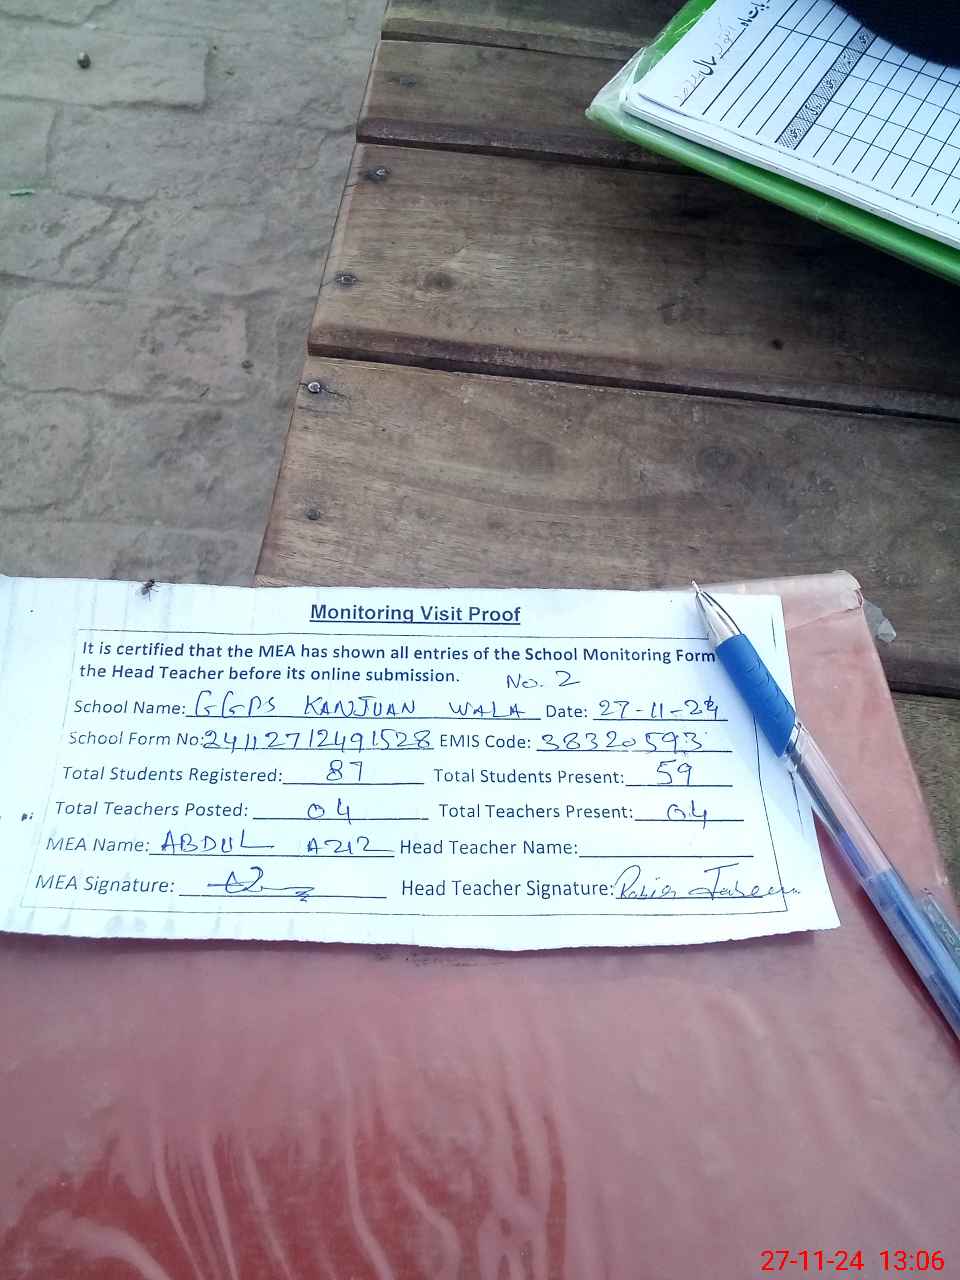 سال
Monitoring Visit Proof
It is certified that the MEA has shown all entries of the School Monitoring Form
the Head Teacher before its online submission. No. 2
School Name: GGPS KANJUAN WALA Date: 27-11-24
School Form No: 24112712491528 EMIS Code: 38320593
Total Students Registered: 87 Total Students Present: 59
Total Teachers Posted: 04 Total Teachers Present: 04
MEA Name: ABDUL AZIZ Head Teacher Name:
MEA Signature: Head Teacher Signature:
27-11-24 13:06